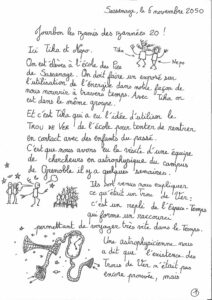 Sassenage, le 5 novembre 2050
Jourbon les Zamis des Zannées 20 !
Ici Tika et Nepo.
Tika
Nepo
On est élèves à l'école des Pies
de Sassenage. On doit faire un exposé sur
l'utilisation de l'énergie dans notre façon de
nous nourrir à travers temps. Avec Tika on
est dans le même groupe.
Et c'est Tika qui a eu l'idée d'utiliser le
TROU DE VER de l'école pour tenter de rentrer
en contact avec des enfants du passé.
C'est que nous avons eu la visite d'une équipe
de chercheurs en astrophysique du campus
de Grenoble il y a quelques semaines.
Ils sont venus nous expliquer
ce qu'était un Trou de Ver :
c'est un repli de l'Espace-Temps
qui forme un raccourci
permettant de voyager très vite dans le Temps.
Une astrophysicienne nous
a dit que l'existence des
Trous de Ver n'était pas
encore prouvée, mais
1